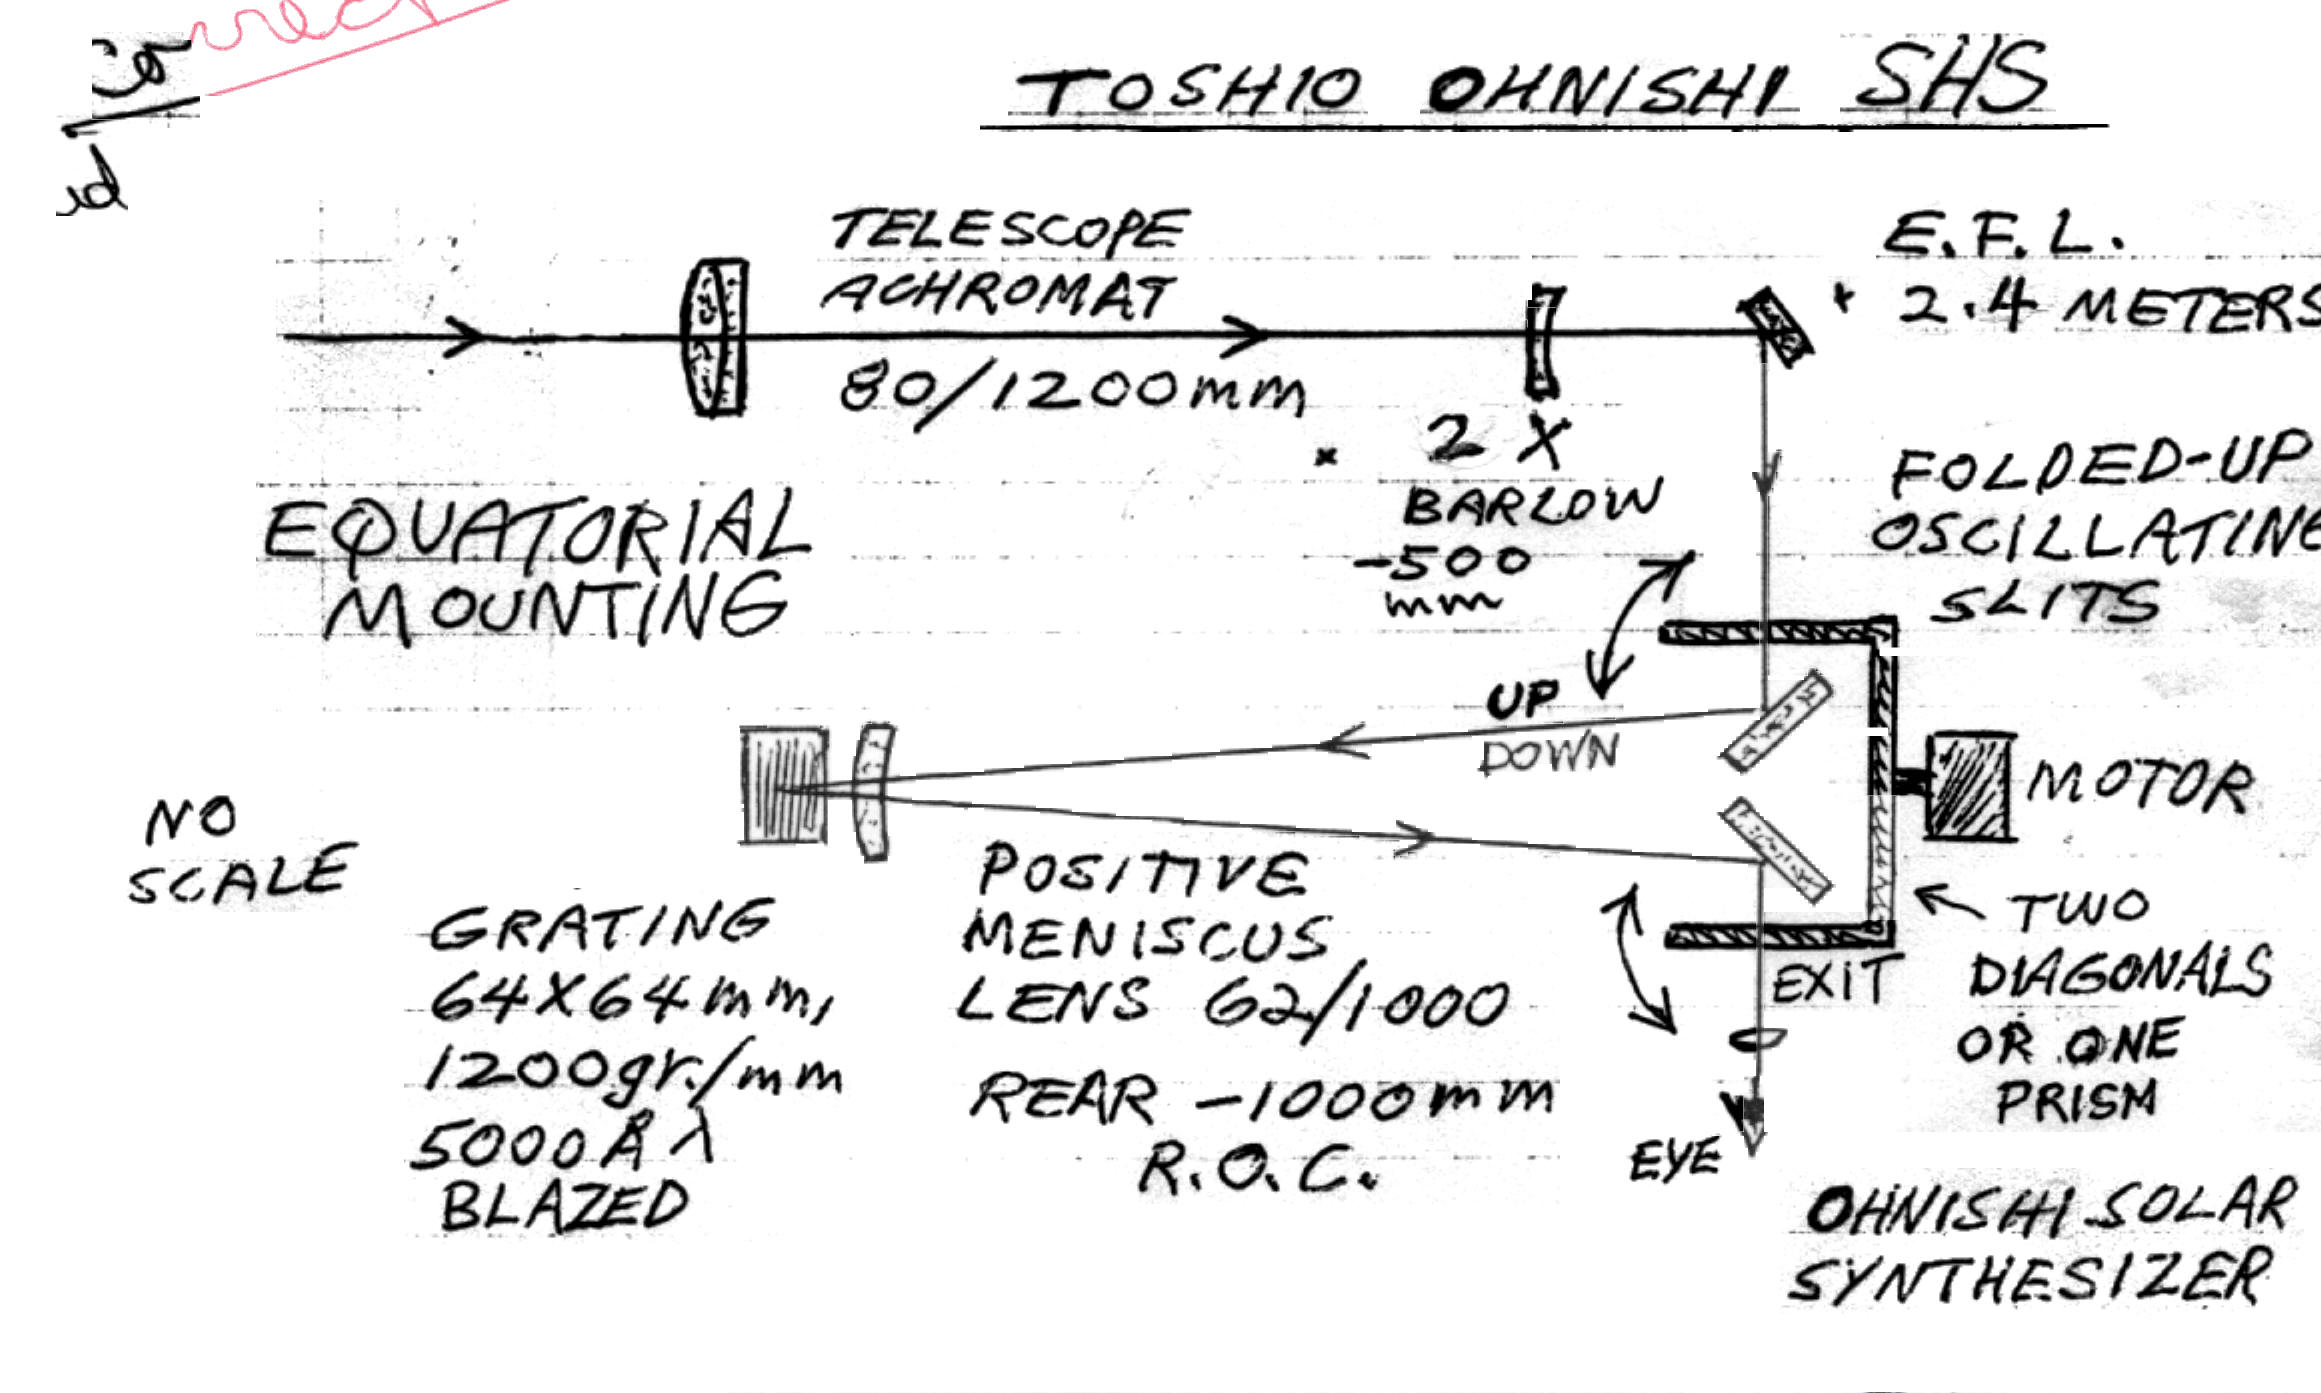 TOSHIO OHNISHI SHS
TELESCOPE
ACHROMAT
80/1200mm
E.F.L.
2.4 METERS
2 X
BARLOW
-500
mm
EQUATORIAL
MOUNTING
FOLDED-UP
OSCILLATING
SLITS
UP
DOWN
MOTOR
NO
SCALE
GRATING
64X64mm,
1200gr./mm
5000Å λ
BLAZED
POSITIVE
MENISCUS
LENS 62/1000
REAR -1000mm
R.O.C.
EXIT
TWO
DIAGONALS
OR ONE
PRISM
EYE
OHNISHI SOLAR
SYNTHESIZER